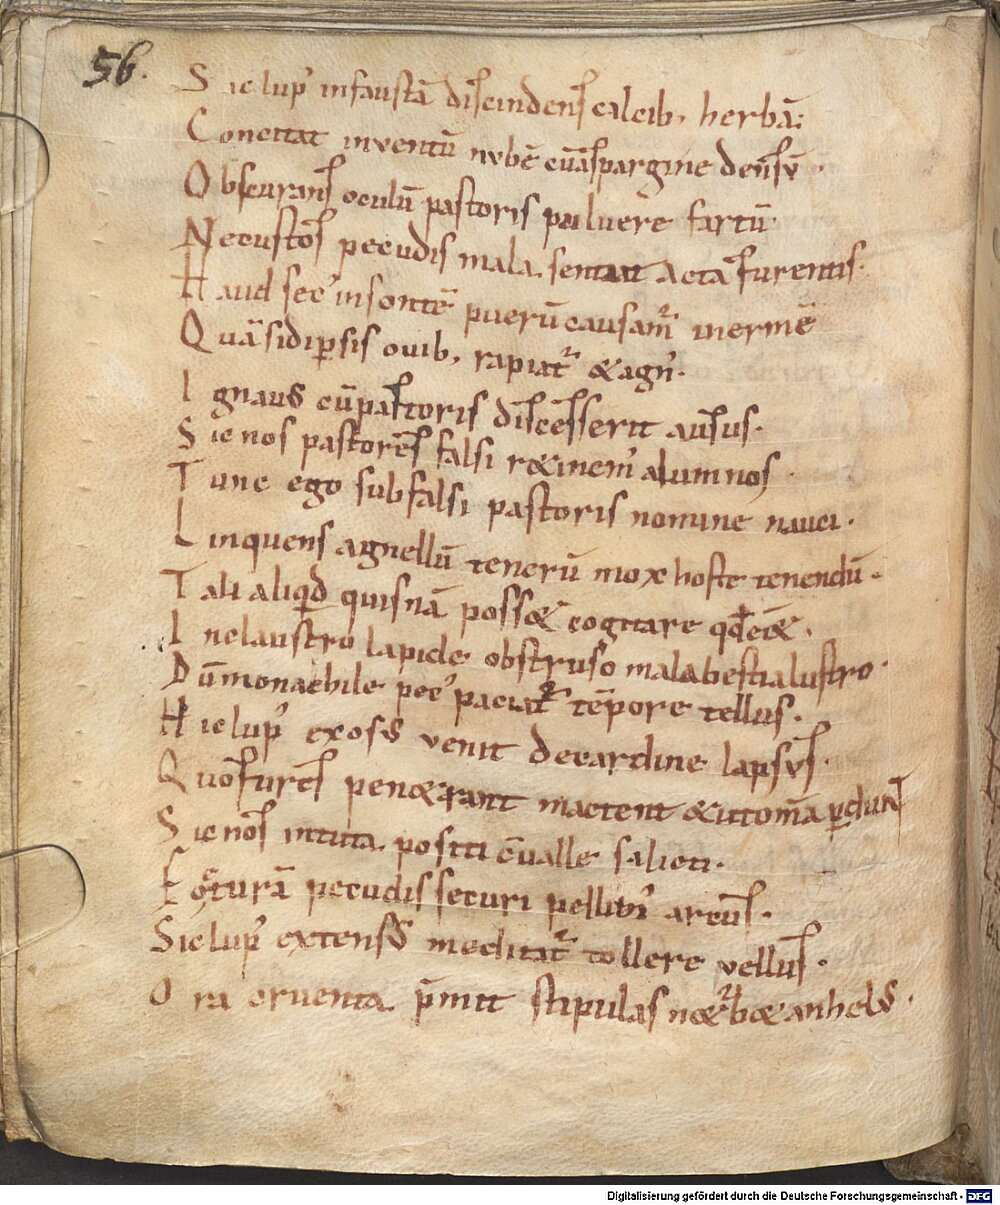 56.
Sic lup' infaustā discindens calcib, herbā;
Concitat inventū nvbē cū aspargine densv̄.
Obscurans oculū pastoris puluere fartū
Ne custos pecudis mala sentiat acta furentis.
Haud sec' insontē puerū causam' inermē
Quā si dispsis ouib, rapiat' & agn'.
Ignaus cū pastoris discesserit ausus.
Sic nos pastores falsi r&inem' alumnos.
Tunc ego sub falsi pastoris nomine nauci.
Linquens agnellū tenerū mox hoste tenendū.
Tali aliqd quisnā poss& cogitare
In claustro lapide obstruso mala bestia lustro.
Dū monachile pec' paciat' tēpore tellus.
Hic lup' exosus venit de cardine lapsvs.
Quos fures pen&rant mactent & ut omā pdunt
Sic nos intuta positi cualle salicti.
pecudis securi pellim' artus.
Sic lup' extensus meditat' tollere vellus.
Ora crventa p̄mit stipulas n& hb& anhelus.
Digitalisierung gefördert durch die Deutsche Forschungsgemeinschaft - DFG